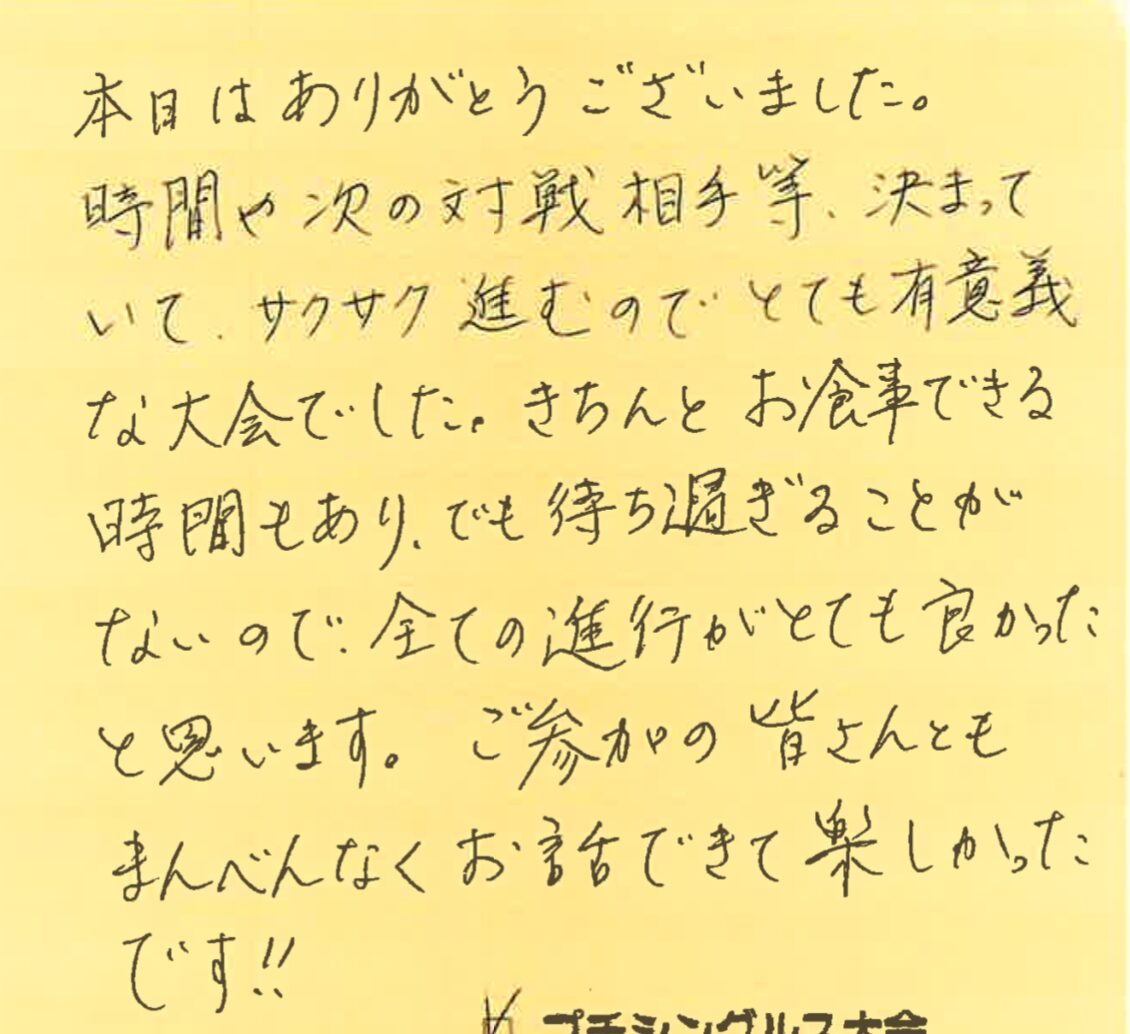 本日はありがとうございました。
時間や次の対戦相手等、決まって
いて、サクサク進むのでとても有意義
な大会でした。きちんとお食事できる
時間もあり、でも待ち過ぎることが
ないので、全ての進行がとても良かった
と思います。ご参加の皆さんとも
まんべんなくお話できて楽しかった
です!!
プチシングルス大会